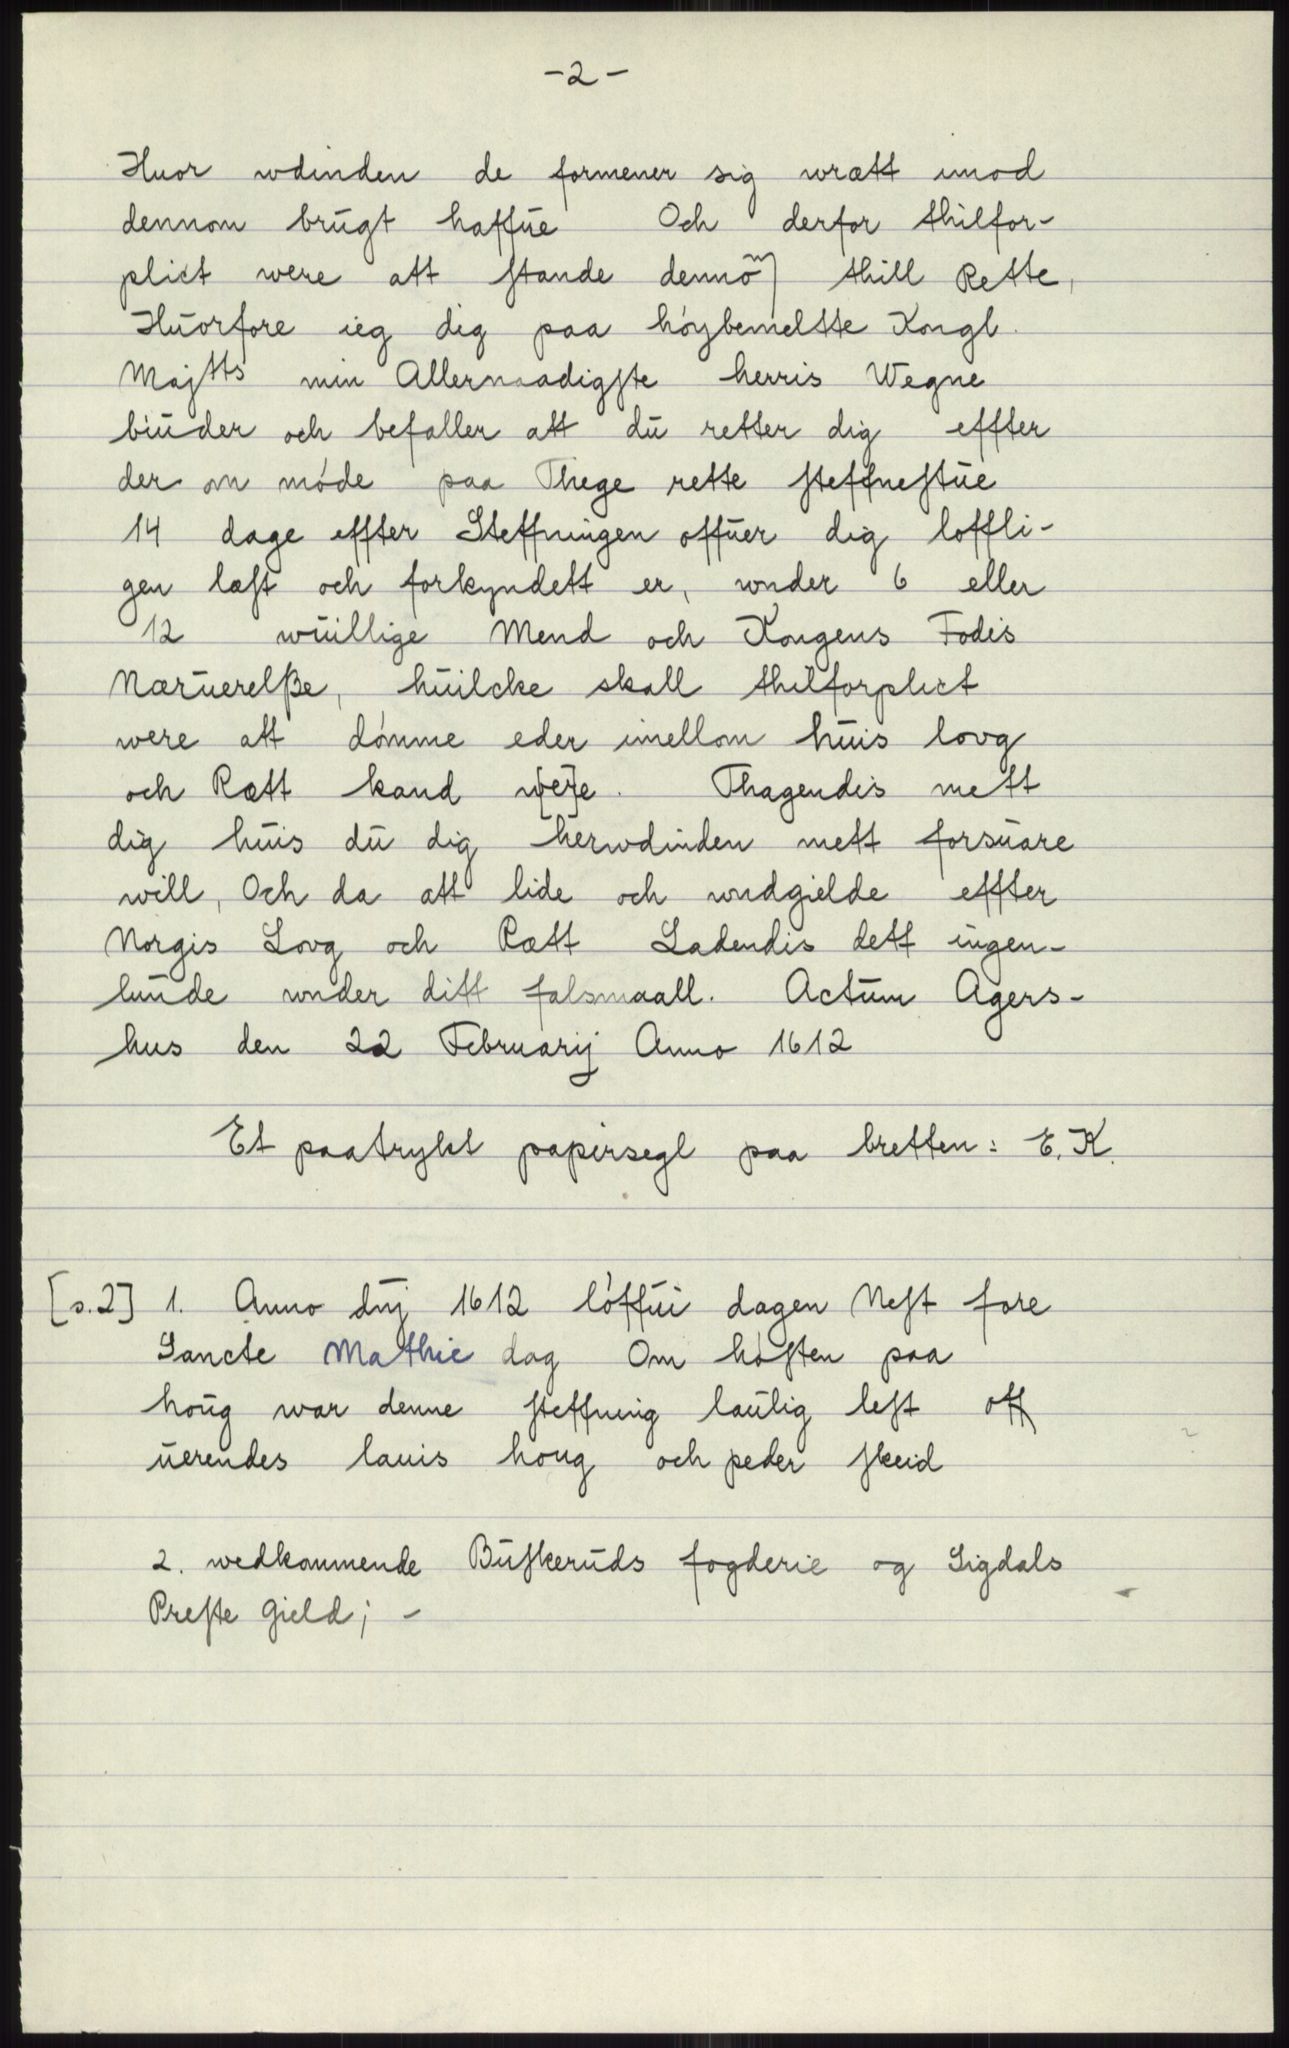 -2-
Huor wdinden de formener sig wrætt imod
dennom brŭgt haffŭe Och derfor thilfor-
plict were att ſtande dennom thill Rette,
Hŭorfore ieg dig paa höybemeltte Kongl.
Majtts min Allernaadigſte herris Wegne
biŭder och befaller att dŭ retter dig effter
der om möde paa Thege rette ſteffneſtŭe
14 dage effter Steffningen offŭer dig loffli-
gen læſt och forkyndett er, wnder 6 eller
12 wŭillige Mend och Kongens Fodis
Nærŭerelße, hŭilcke skall thilforplict
were att dömme eder imellom hŭis lovg
och Rætt kand w[er]e. Thagendis mett
dig hŭis dŭ dig herwdinden mett forsŭare
will, Och da att lide och wndgielde effter
Norgis Lovg och Rætt Ladendis dett ingen-
lunde wnder ditt falsmaall. Actŭm Agers-
hus den 22 Februarij Anno 1612
Et paatrykt papirsegl paa bretten: E. K.
[s.2] 1. Anno dnj 1612 löffŭi dagen Neſt fore
Sancte Mathie dag Om höſten paa
hoŭg war denne ſteffning laŭlig leſt off
ŭerendes lauis houg och peder ſkeid
2. wedkommende Bŭſkerŭds fogderie og Sigdals
Preſte gield; -